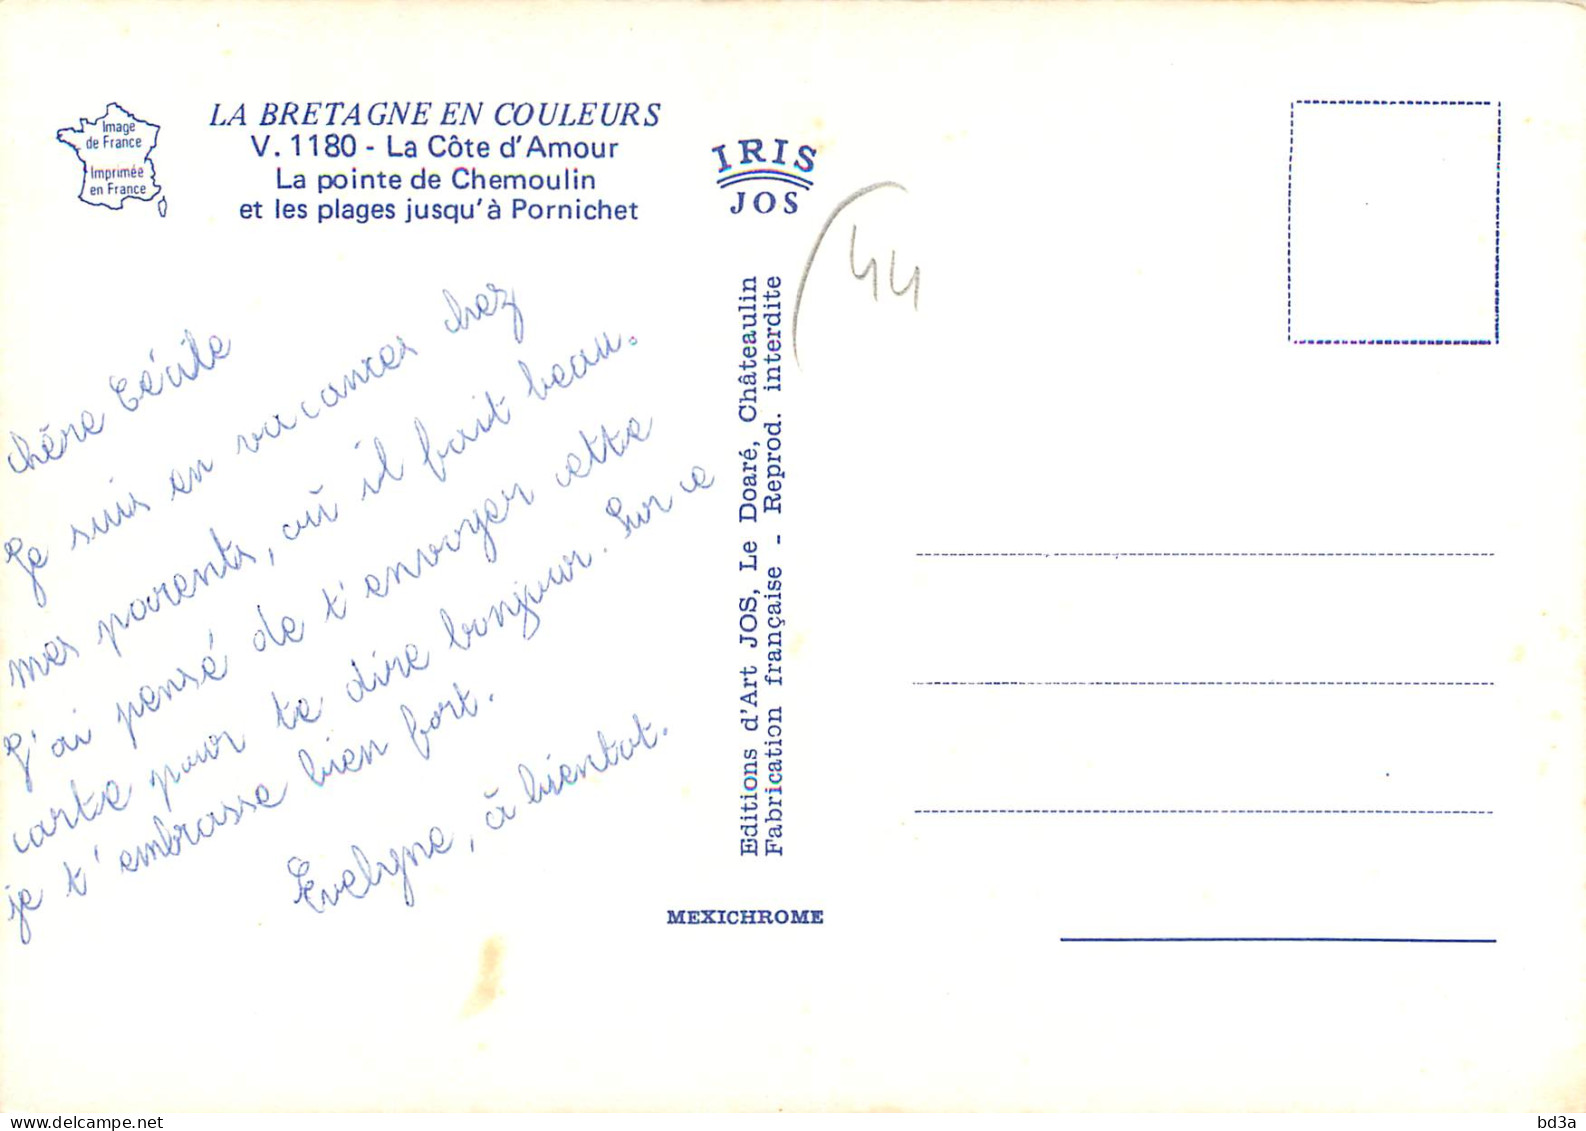 Image
de France
Imprimée
en France
LA BRETAGNE EN COULEURS
V. 1180 - La Côte d'Amour
La pointe de Chemoulin
et les plages jusqu'à Pornichet
IRIS
JOS
44
chère Cécile
Je suis en vacances chez
mes parents, où il fait beau.
J'ai pensé de t'envoyer cette
carte pour te dire bonjour. Sur ce
je t'embrasse bien fort.
Evelyne, à bientot.
Editions d'Art JOS, Le Doaré, Châteaulin
Fabrication française - Reprod. interdite
MEXICHROME
bd3a